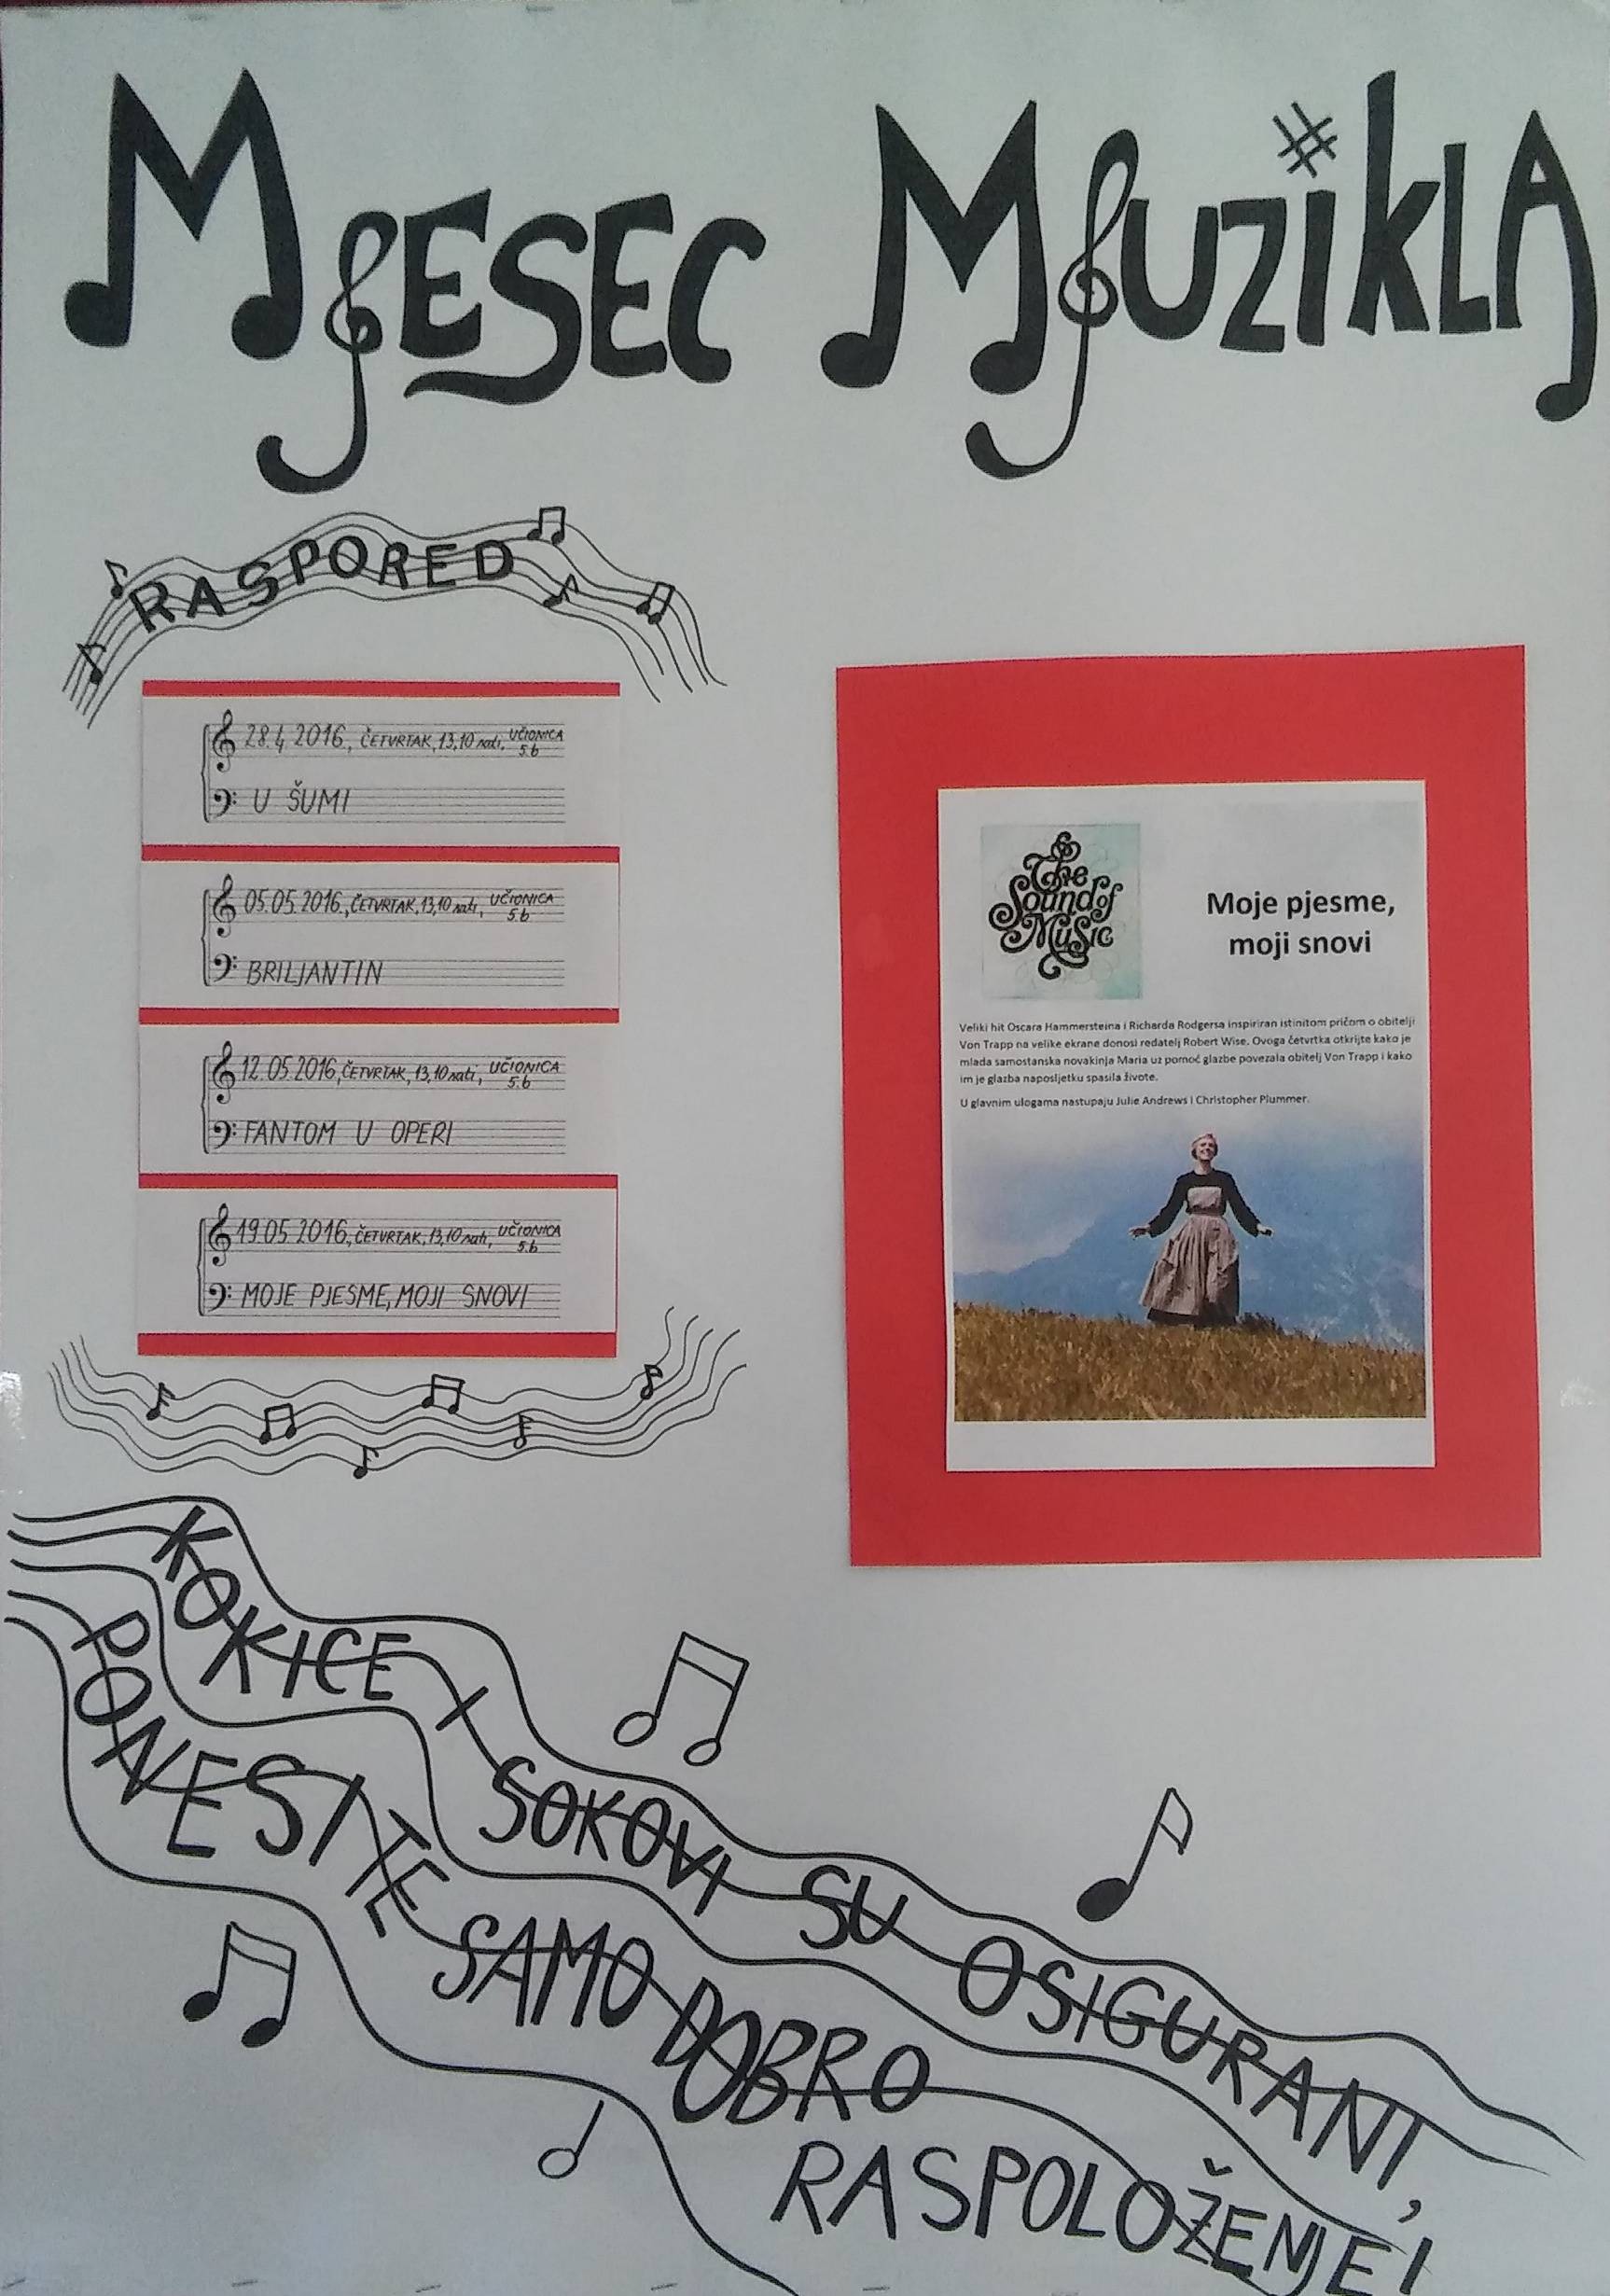 MJESEC MUZIKLA
RASPORED
28.4.2016., ČETVRTAK, 13,10 sati, UČIONICA 5.b
U ŠUMI
05.05.2016., ČETVRTAK, 13,10 sati, UČIONICA 5.b
BRILJANTIN
12.05.2016, ČETVRTAK, 13,10 sati, UČIONICA 5.b
FANTOM U OPERI
19.05.2016., ČETVRTAK, 13,10 sati, UČIONICA 5.b
MOJE PJESME, MOJI SNOVI
The
Sound of
Music
Moje pjesme,
moji snovi
Veliki hit Oscara Hammersteina i Richarda Rodgersa inspiriran istinitom pričom o obitelji
Von Trapp na velike ekrane donosi redatelj Robert Wise. Ovoga četvrtka otkrijte kako je
mlada samostanska novakinja Maria uz pomoć glazbe povezala obitelj Von Trapp i kako
im je glazba naposljetku spasila živote.
U glavnim ulogama nastupaju Julie Andrews i Christopher Plummer.
KOKICE I SOKOVI SU OSIGURANI,
PONESITE SAMO DOBRO
RASPOLOŽENJE!